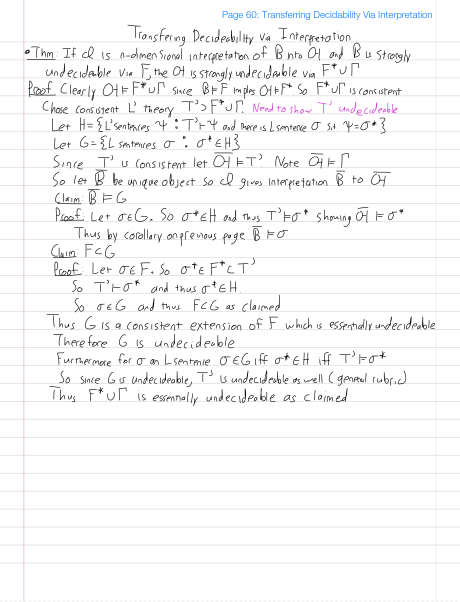 Page 60: Transferring Decidability Via Interpretation
Transfering Decideability via Interpretation
• Thm: If α is n-dimensional interpretation of B into 𝔄 and B is strongly
undecideable via F, the 𝔄 is strongly undecideable via F* ∪ Γ
Proof: Clearly 𝔄 ⊨ F* ∪ Γ since B ⊨ F implies 𝔄 ⊨ F* so F* ∪ Γ is consistent
Chose consistent L' theory T' ⊃ F* ∪ Γ. Need to show T' undecideable
Let H = {L' sentences ψ : T' ⊢ ψ and there is L sentence σ s.t. ψ = σ*}
Let G = {L sentences σ : σ* ∈ H}
Since T' is consistent let 𝔄̅ ⊨ T' Note 𝔄̅ ⊨ Γ
So let B̅ be unique object so α gives interpretation B̅ to 𝔄̅
Claim: B̅ ⊨ G
Proof: Let σ ∈ G. So σ* ∈ H and thus T' ⊨ σ* showing 𝔄̅ ⊨ σ*
Thus by corollary on previous page B̅ ⊨ σ
Claim: F ⊂ G
Proof: Let σ ∈ F. So σ* ∈ F* ⊂ T'
So T' ⊢ σ* and thus σ* ∈ H.
So σ ∈ G and thus F ⊂ G as claimed
Thus G is a consistent extension of F which is essentially undecideable
Therefore G is undecideable
Furthermore for σ an L sentence σ ∈ G iff σ* ∈ H iff T' ⊨ σ*
So since G is undecideable, T' is undecideable as well (general rubric)
Thus F* ∪ Γ is essentially undecideable as claimed